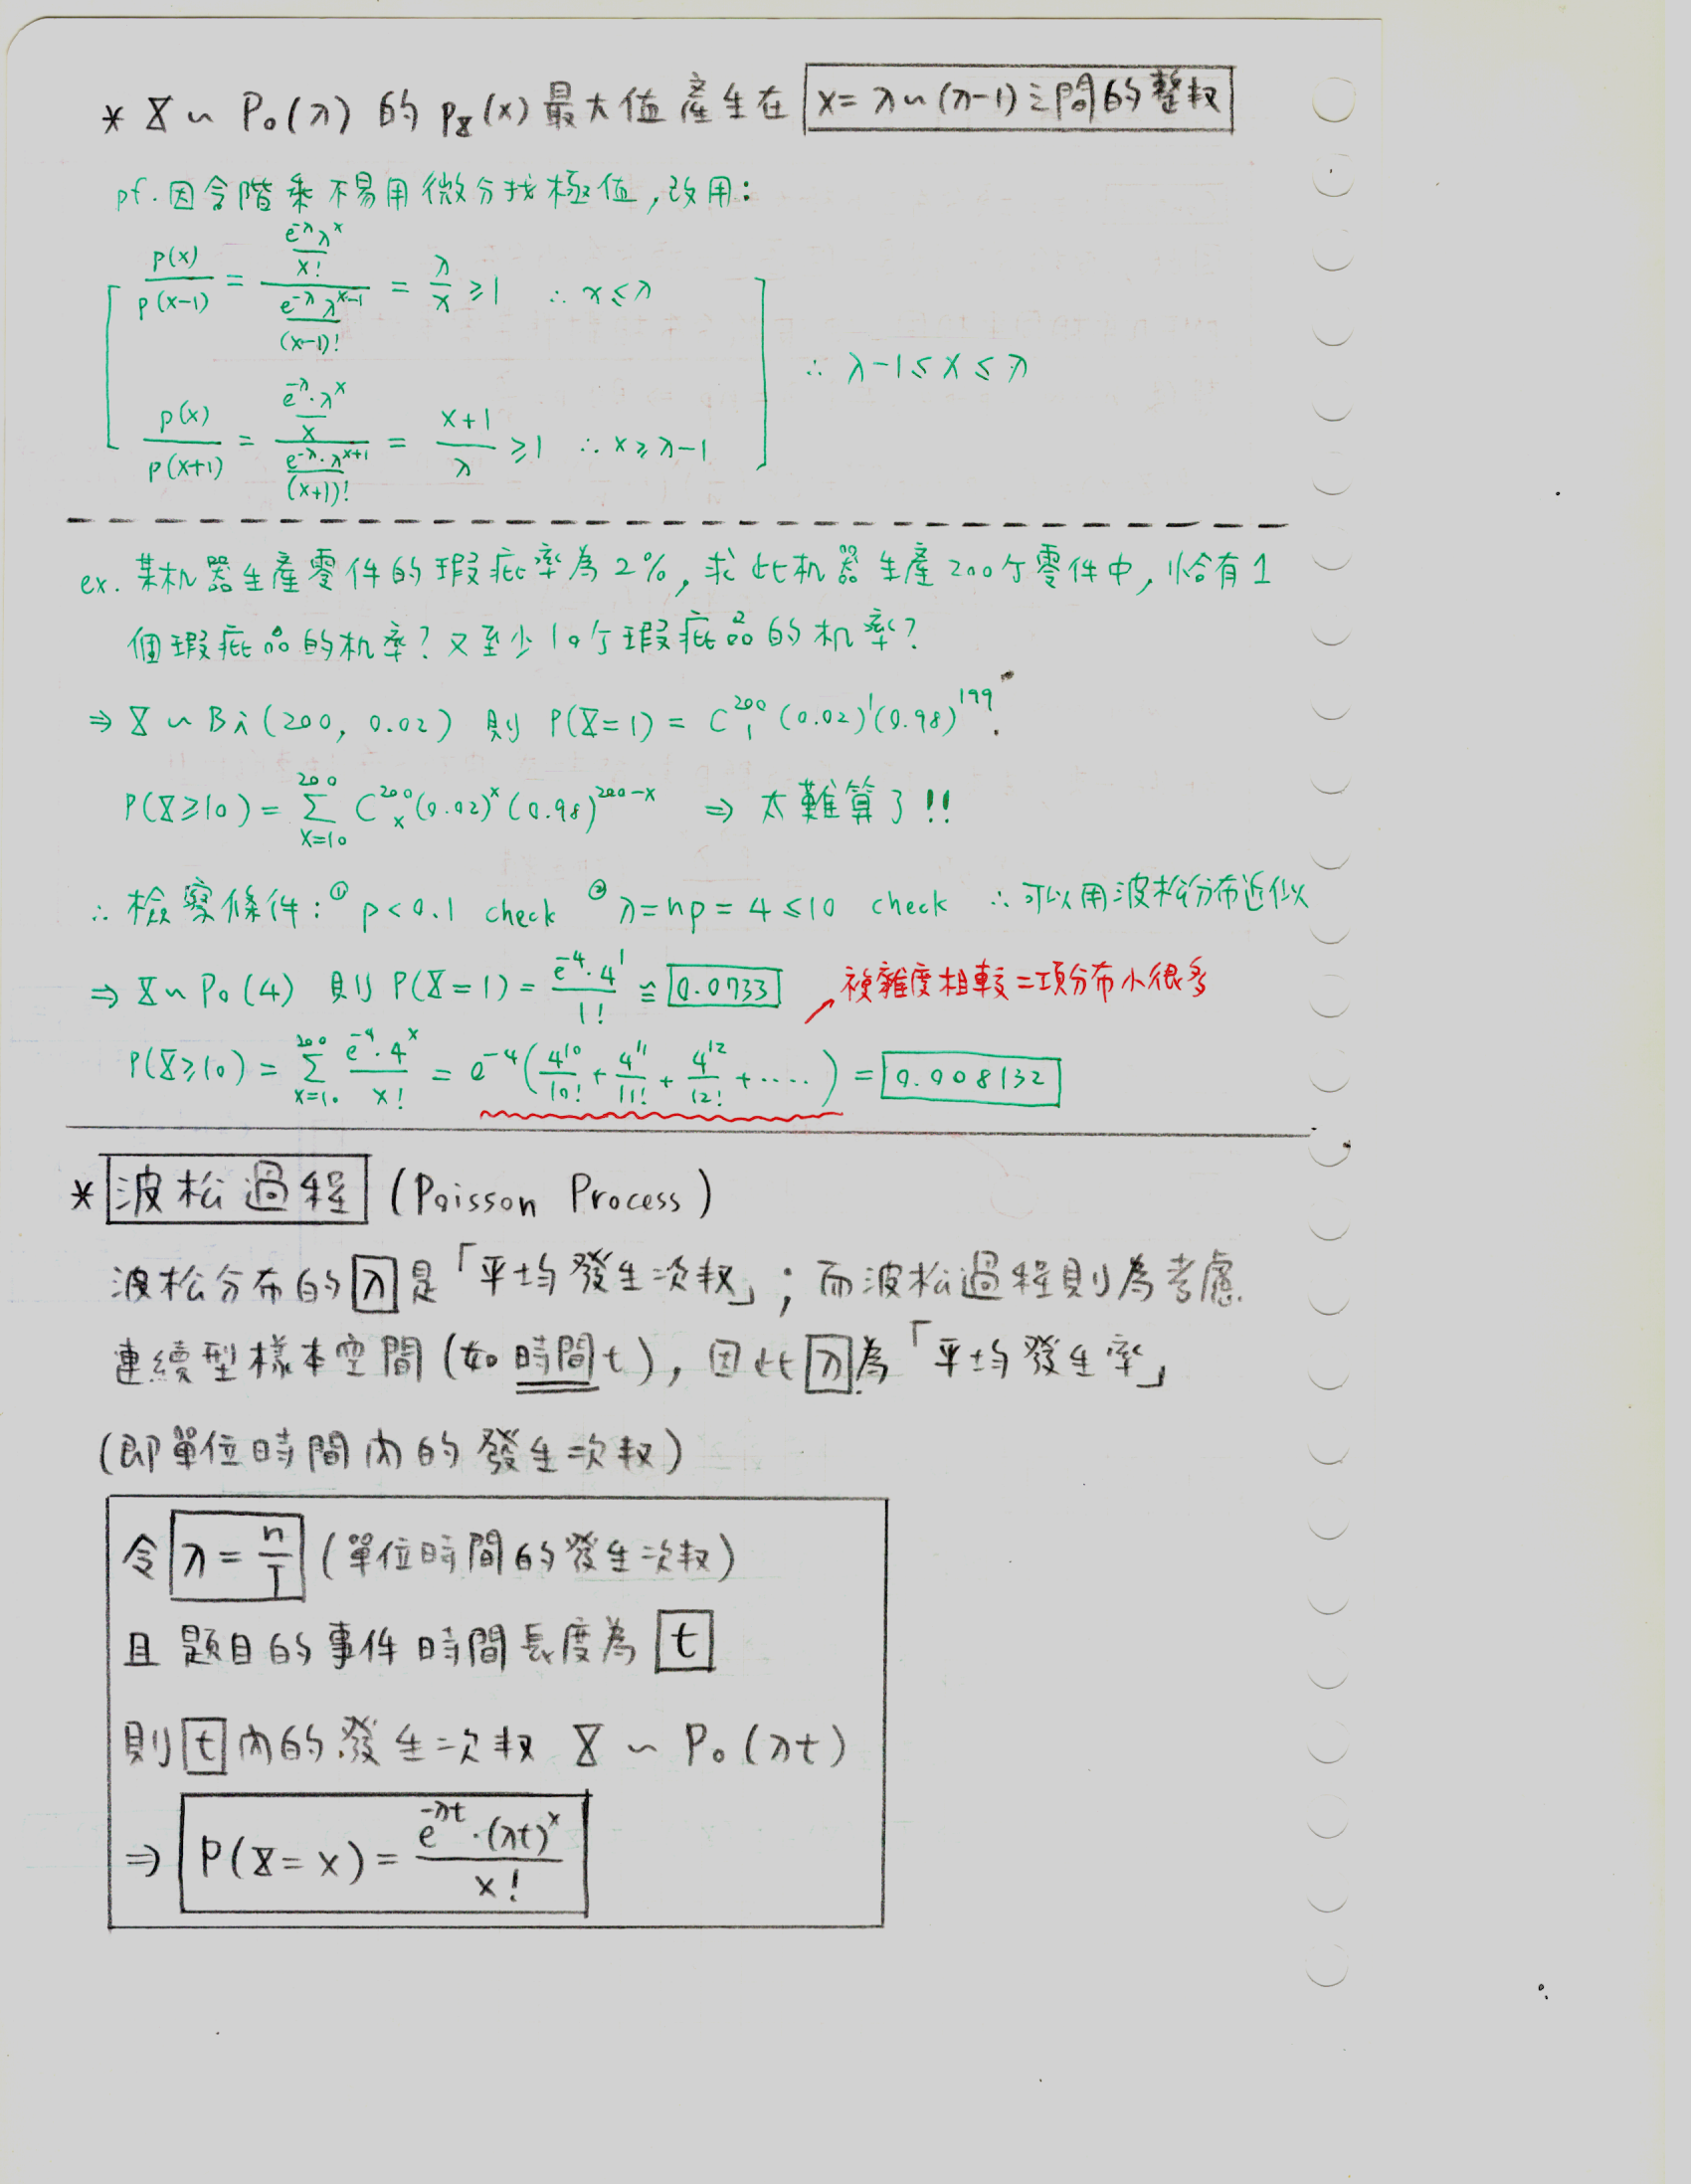 * X ~ Po(λ) 的 pX(x) 最大值產生在 x = λ ~ (λ-1) 之間的整数
pf. 因含階乘不易用微分找極值，改用：
p(x)/p(x-1) = (e^-λ λ^x / x!) / (e^-λ λ^(x-1) / (x-1)!) = λ/x ≥ 1 ∴ x ≤ λ
∴ λ-1 ≤ x ≤ λ
p(x)/p(x+1) = (e^-λ · λ^x / x) / (e^-λ · λ^(x+1) / (x+1)!) = (x+1)/λ ≥ 1 ∴ x ≥ λ-1
ex. 某机器生產零件的瑕疵率為2%，求此机器生產200个零件中，恰有1
個瑕疵品的机率？又至少10个瑕疵品的机率？
⇒ X ~ Bi(200, 0.02) 則 P(X=1) = C^200_1 (0.02)^1 (0.98)^199.
P(X≥10) = Σ_{x=10}^{200} C^200_x (0.02)^x (0.98)^(200-x) ⇒ 太難算了!!
∴ 檢察條件：① p<0.1 check ② λ=np=4≤10 check ∴可以用波松分布近似
⇒ X ~ Po(4) 則 P(X=1) = e^-4 · 4^1 / 1! ≅ 0.0733
複雜度相較二項分布小很多
P(X≥10) = Σ_{x=10}^{200} e^-4 · 4^x / x! = e^-4 (4^10/10! + 4^11/11! + 4^12/12! + ····) = 0.008132
* 波松過程 (Poisson Process)
波松分布的 λ 是「平均發生次数」；而波松過程則為考慮
連續型樣本空間 (如時間t)，因此 λ 為「平均發生率」
(即單位時間內的發生次数)
令 λ = n/T (單位時間的發生次数)
且題目的事件時間長度為 t
則 t 內的發生次数 X ~ Po(λt)
⇒ P(X=x) = e^-λt · (λt)^x / x!